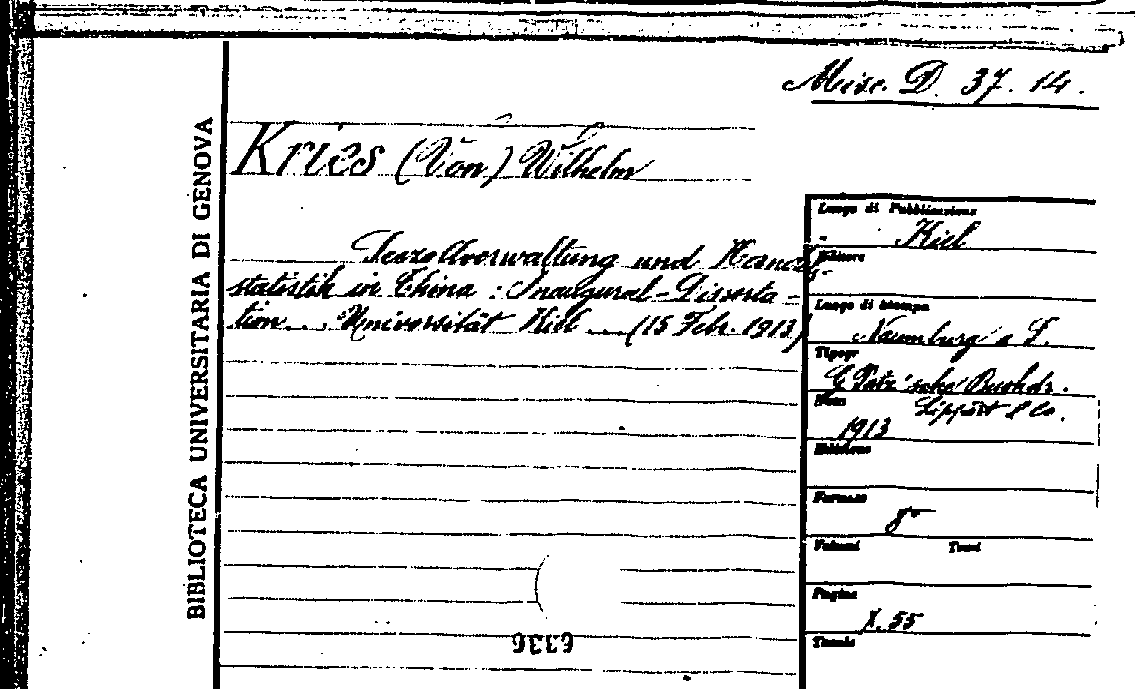 Misc. D. 37. 14.
BIBLIOTECA UNIVERSITARIA DI GENOVA
Kries (Von) Wilhelm
Seezollverwaltung und Handels-
statistik in China : Inaugural-Disserta-
tion. . Universität Kiel .. (15 Febr. 1913)
Luogo di Pubblicazione
Kiel
Editore
Luogo di stampa
Naumburg a S.
Tipogr
G. Pätz'sche Buchdr.
Lippert & Co.
Anno
1913
Edizione
Formato
8°
Volumi Tomi
Pagine
X. 55
6336